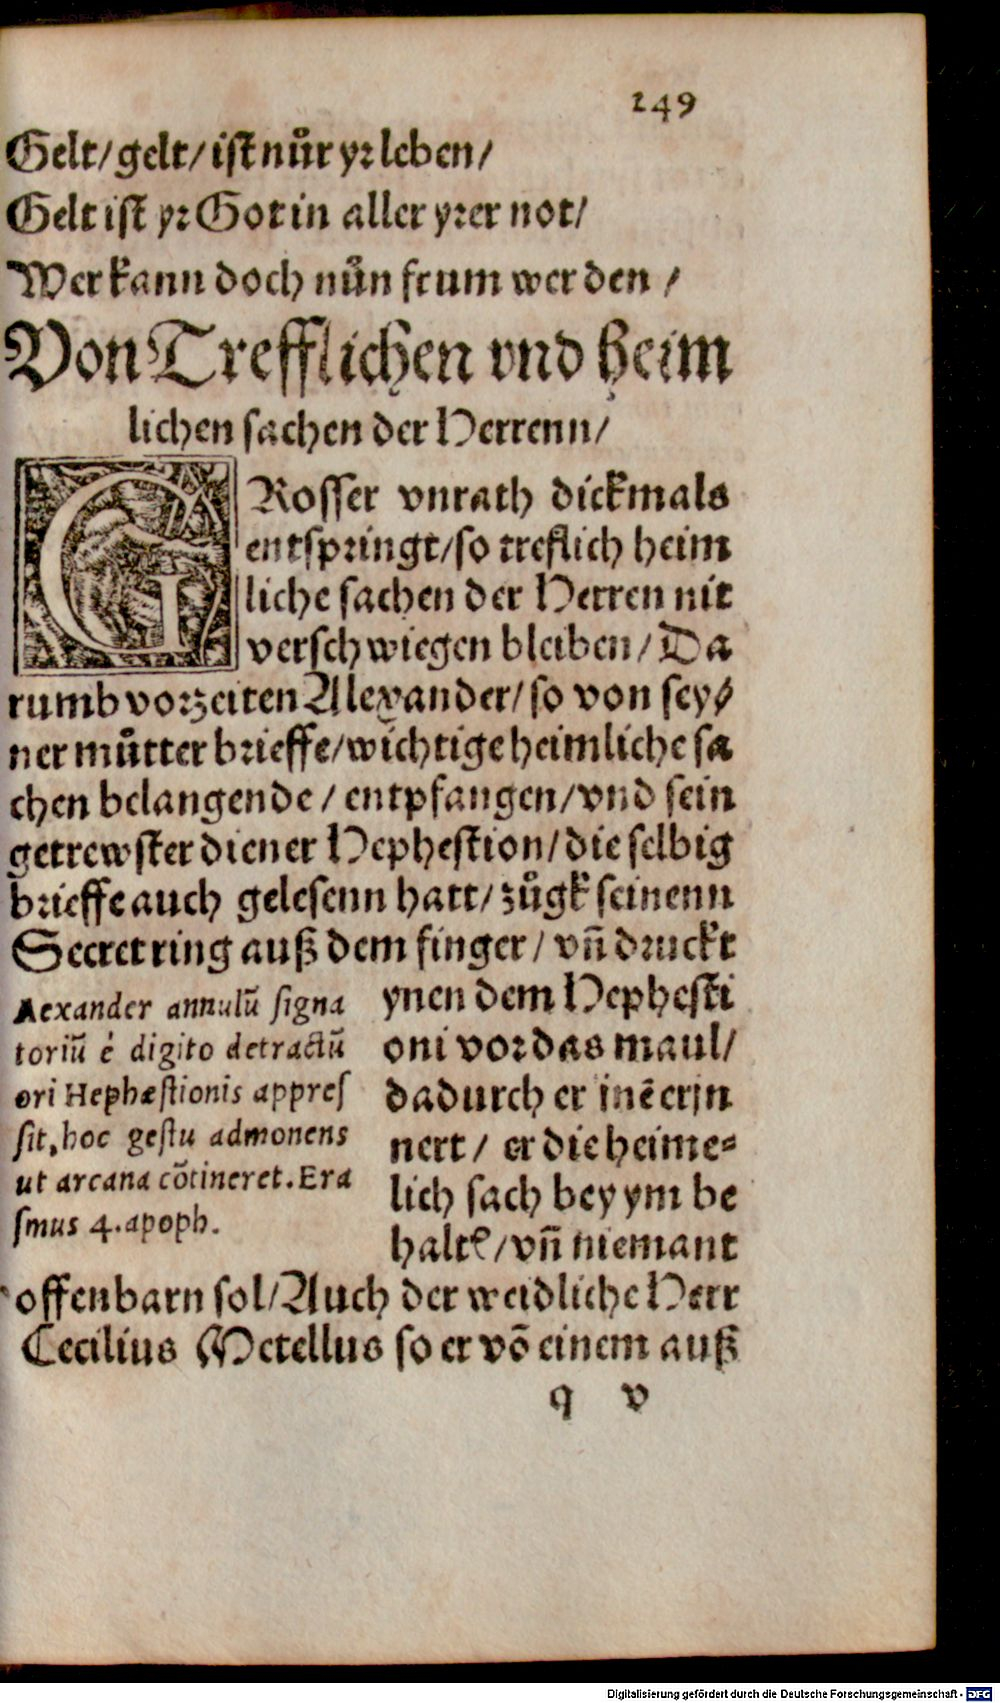 249
Gelt/gelt/ist nůr yr leben/
Gelt ist yr Got in aller yrer not/
Wer kann doch nůn frum werden/
Von Trefflichen vnd heim
lichen sachen der Herrenn/
GRosser vnrath dickmals
entspringt/so treflich heim
liche sachen der Herren nit
verschwiegen bleiben/Da
rumb vorzeiten Alexander/so von sey⸗
ner můtter brieffe/wichtige heimliche sa
chen belangende/entpfangen/vnd sein
getrewster diener Hephestion/die selbig
brieffe auch gelesenn hatt/zůgk seinenn
Secret ring auß dem finger/vn̄ druckt
ynen dem Hephesti
oni vor das maul/
dadurch er inē erin
nert/er die heime⸗
lich sach bey ym be
halte/vn̄ niemant
Aexander annulū signa
toriū è digito detractū
ori Hephæstionis appres
sit, hoc gestu admonens
ut arcana cōtineret. Era
smus 4. apoph.
offenbarn sol/Auch der weidliche Herr
Cecilius Metellus so er vō einem auß
q v
Digitalisierung gefördert durch die Deutsche Forschungsgemeinschaft - DFG